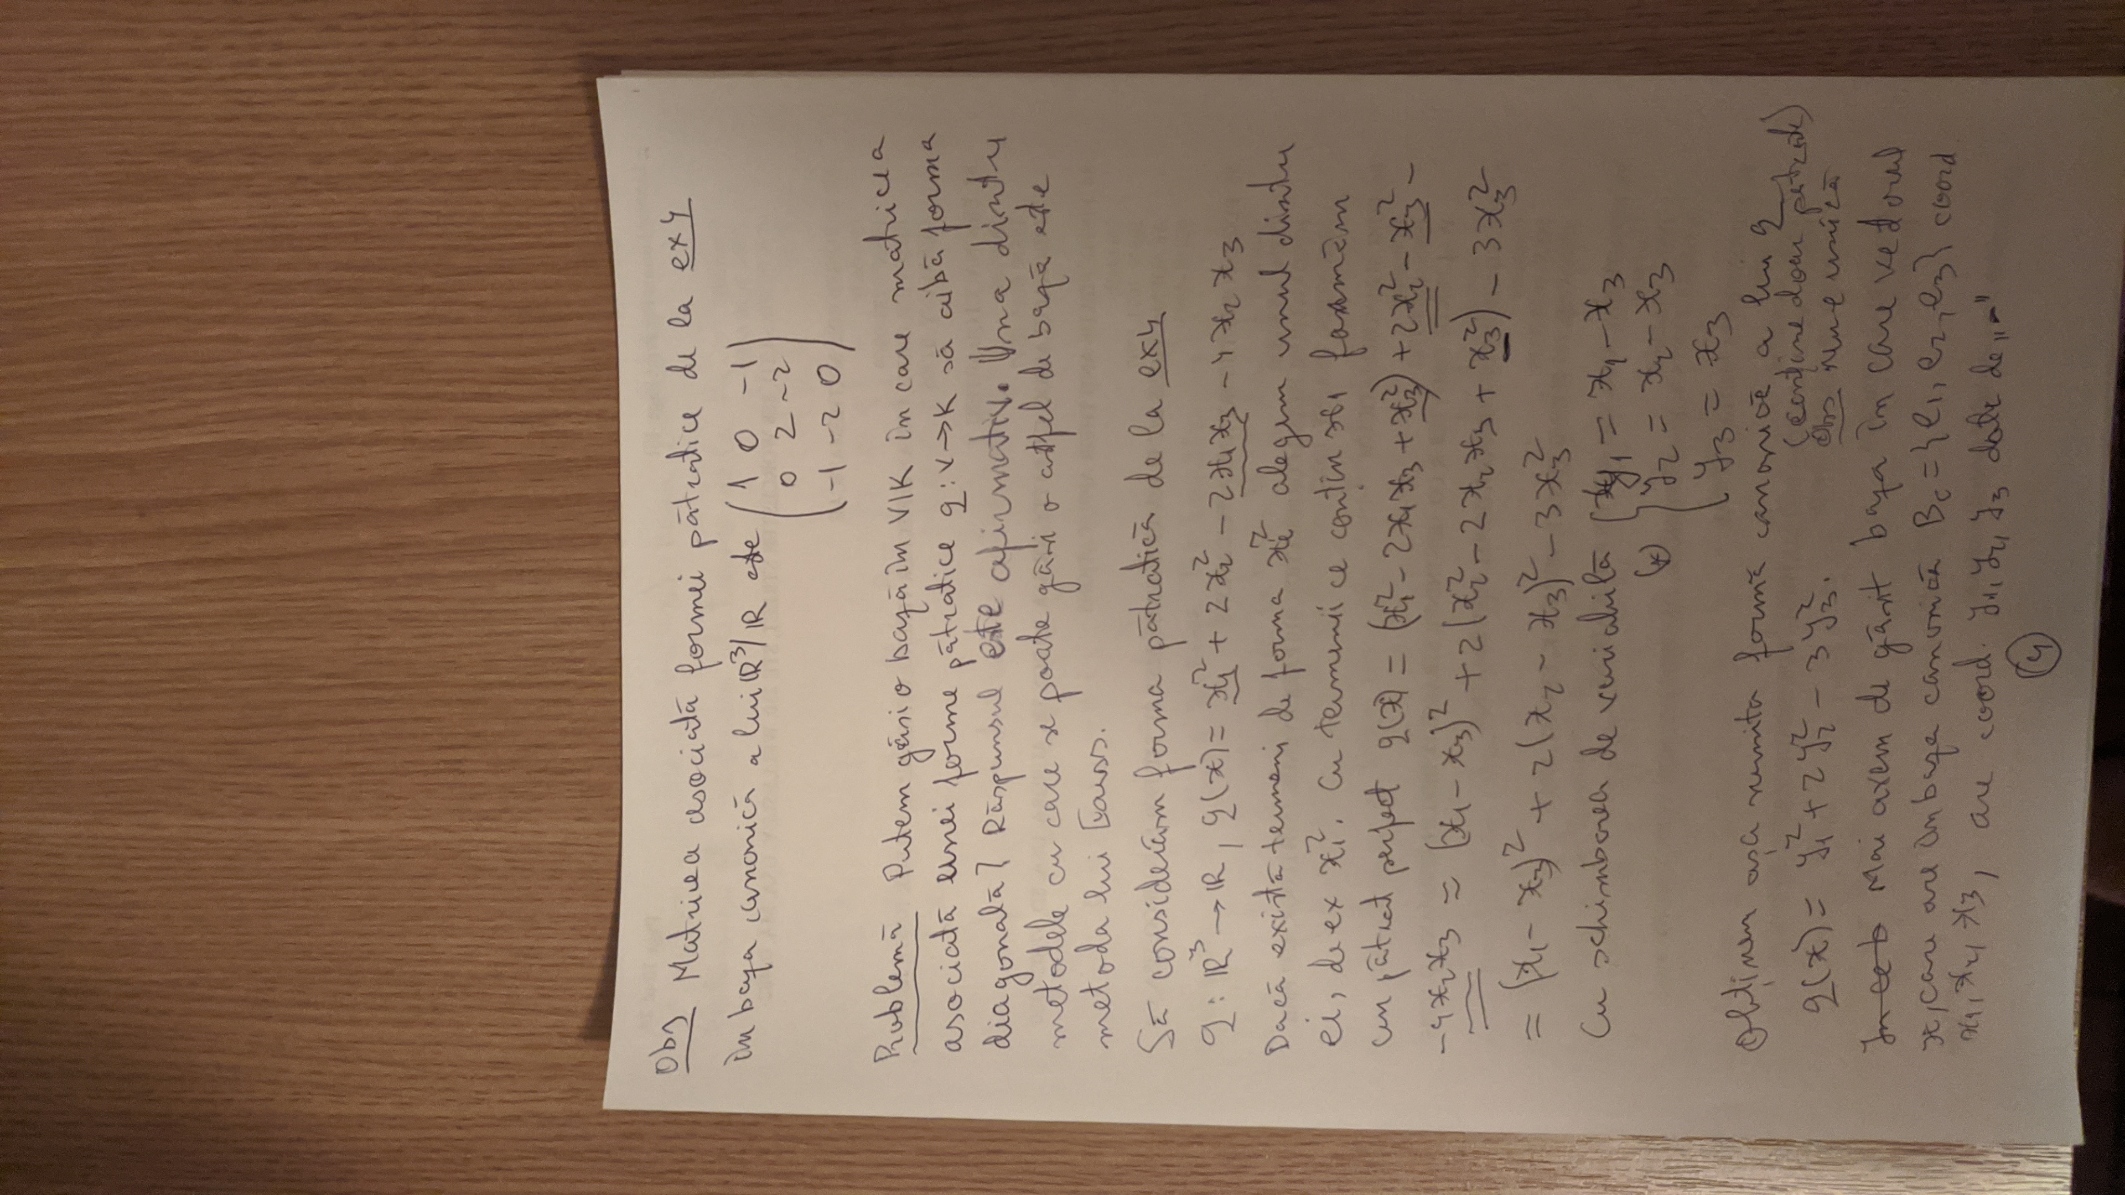 Obs Matricea asociată formei pătratice de la ex4
în baza canonică a lui ℝ³/ℝ este
(1 0 -1
0 2 -2
-1 -2 0)
Problemă Putem găsi o bază în V/K în care matricea
asociată unei forme pătratice q: V→K să aibă forma
diagonală? Răspunsul este afirmativ. Una dintre
metodele cu care se poate găsi o astfel de bază este
metoda lui Gauss.
Să considerăm forma pătratică de la ex4
q: ℝ³ → ℝ, q(x) = x₁² + 2x₂² - 2x₁x₃ - 4x₂x₃
Dacă există termeni de forma xᵢ² alegem unul dintre
ei, de ex x₁². Cu termenii ce conțin x₁ formăm
un pătrat perfect q(x) = (x₁² - 2x₁x₃ + x₃²) + 2x₂² - x₃² -
- 4x₂x₃ = (x₁ - x₃)² + 2(x₂² - 2x₂x₃ + x₃²) - 3x₃²
= (x₁ - x₃)² + 2(x₂ - x₃)² - 3x₃²
Cu schimbarea de variabilă { y₁ = x₁ - x₃
(*) y₂ = x₂ - x₃
y₃ = x₃
Obținem așa numita formă canonică a lui q
(conține doar pătrate)
q(x) = y₁² + 2y₂² - 3y₃².
Obs Nu e unică
Mai avem de găsit baza în care vectorul
x, care are în baza canonică Bc = {e₁, e₂, e₃} coord
x₁, x₂, x₃, are coord. y₁, y₂, y₃ date de
4